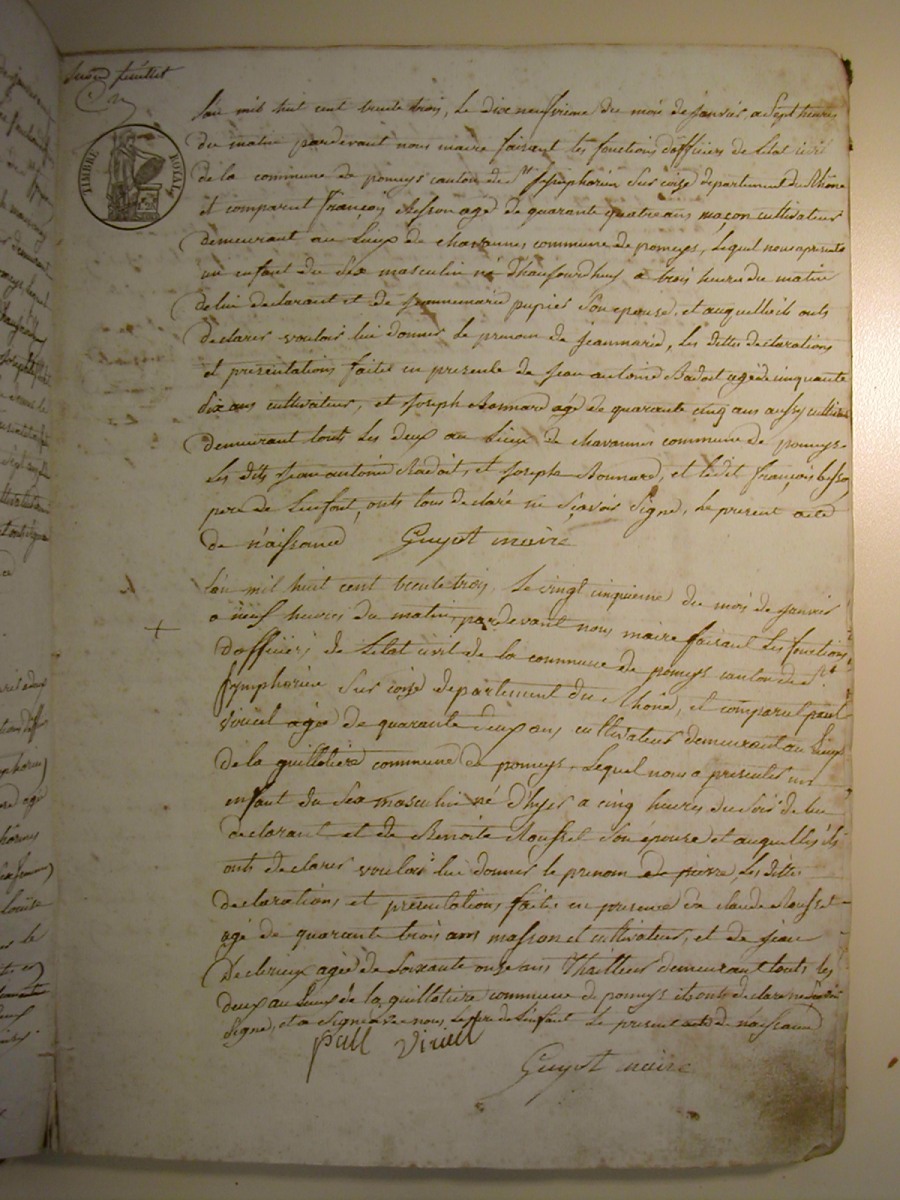 feuillet
TIMBRE ROYAL
L'an mil huit cent trente trois, le dix neufvieme du mois de janvier a Sept heures
du matin pardevant nous maire faisant les fonctions d'officiers de l'état civil
de la commune de pomeys canton de St Symphorien Sur coise departement du Rhône
et comparut françois Besson agé de quarante quatre ans maçon cultivateur
demeurant au Lieux de chavannes commune de pomeys, Lequel nous a presenté
un enfant du Sex masculin né d'haujourdhuy a trois heure du matin
de lui declarant et de jeannemarie pupier Son epouse, et auquelle ils onts
declarer vouloir lui donner le prenom de jeanmarie, les dittes declarations
et presentations faites en presente de jean antoine Badoit agé de cinquante
dix ans cultivateur, et Joseph Bonnard agé de quarante cinq ans aussy cultiv
demeurant touts Les deux au Lieux de chavannes commune de pomeys.
Les dits jean antoine Badoit, et Joseph Bonnard, et le dit françois besson
pere de L'enfant, onts tous declaré ne Sçavoir Signé, le present acte
de naissance Guyot maire
L'an mil huit cent trente trois, Le vingt cinquieme du mois de janvier
a neuf heures du matin, pardevant nous maire faisant Les fonctions
d'officiers de L'etat civil de la commune de pomeys canton de St
Symphorien Sur coise departement du Rhône, et comparut paul
viricel agée de quarante deux ans cultivateur demeurant au Lieux
de la guilletiere commune de pomeys, Lequel nous a presenter un
enfant du Sex masculin né d'hyer a cinq heures du Soir de lui
declarant et de Benoite Rousset Son épouse et auquelles ils
onts declarer vouloir lui donner le prenom de pierre, les dittes
declarations et presentations faites en presence de claude Rousset
agé de quarante trois ans masson et cultivateur, et de jean
agée de Soixante onze ans Thailleur demeurant touts les
deux au Lieux de la guilletiere commune de pomeys ils onts declare ne Savoir
Signé, et a Signé avec nous Le pere de L'enfant Le present acte de naissance
paul viricel
Guyot maire